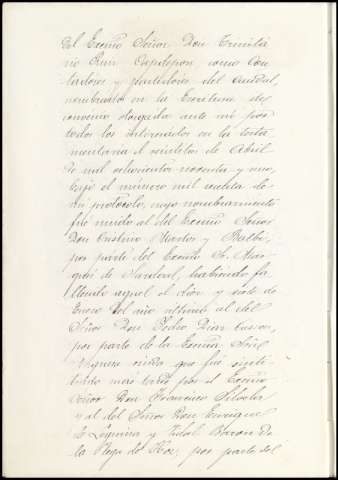 el Excmo Señor Don Trinita
rio Ruiz Capdepon, como Con
tadores y partidores del caudal,
nombrados en la Escritura de
convenio otorgada ante mi por
todos los interesados en la testa
mentaria el veintitres de Abril
de mil ochocientos noventa y uno,
bajo el número mil treinta de
mi protocolo, cuyo nombramiento
fué unido al del Excmo Señor
Don Cristino Martos y Balbi,
por parte del Excmo Sr. Mar
qués de Sandoval, habiendo fa
llecido aquel el diez y siete de
Enero del año último al del
Señor Don Pedro Diaz
por parte de la Excma Sra
viuda que fué susti
tuido más tarde por el Excmo
Señor Don Francisco Silvela
y al del Señor Don Enrique
de Leguina y Vidal Baron de
la Vega de Hoz, por parte del